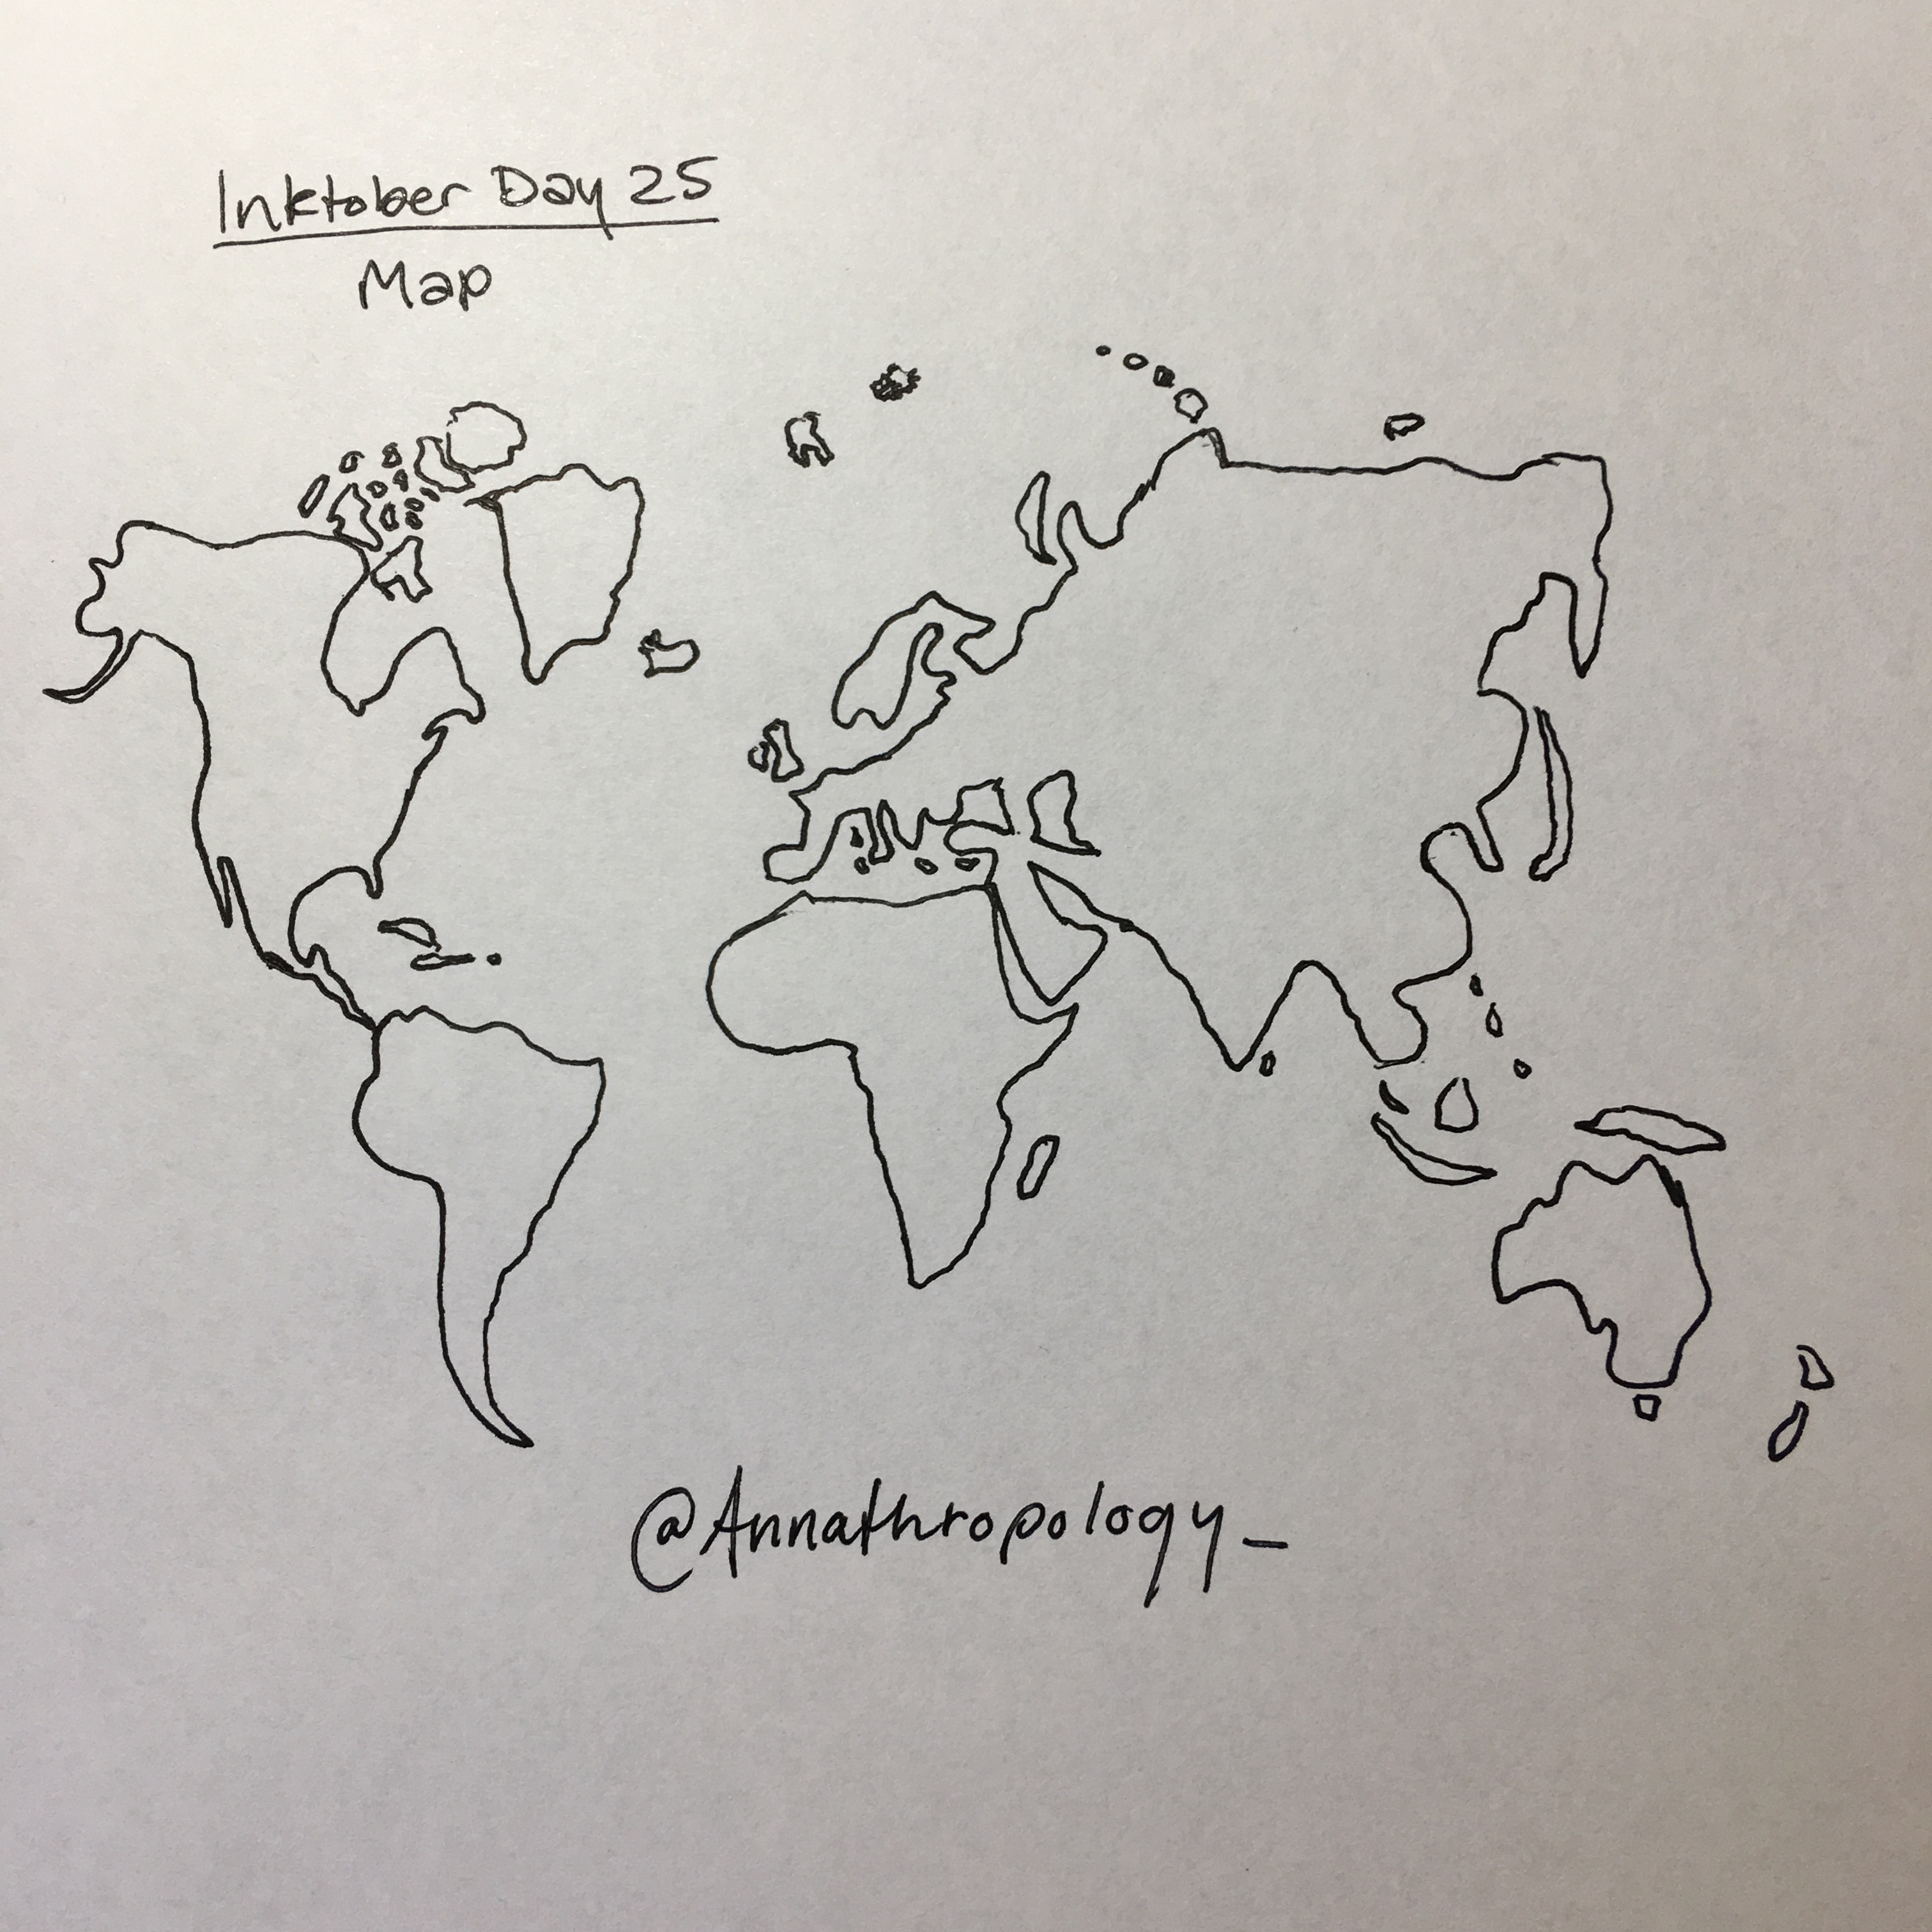 Inktober Day 25
Map
@Annathropology_